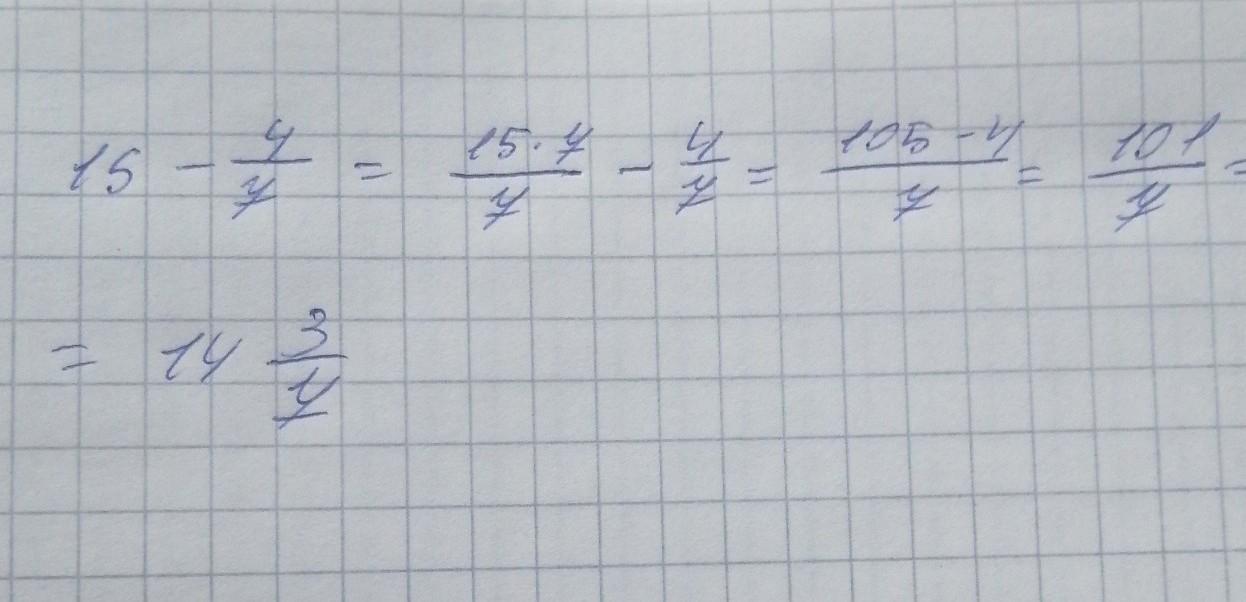 15 - 4/7 = 15·7/7 - 4/7 = 105-4/7 = 101/7 =
= 14 3/7